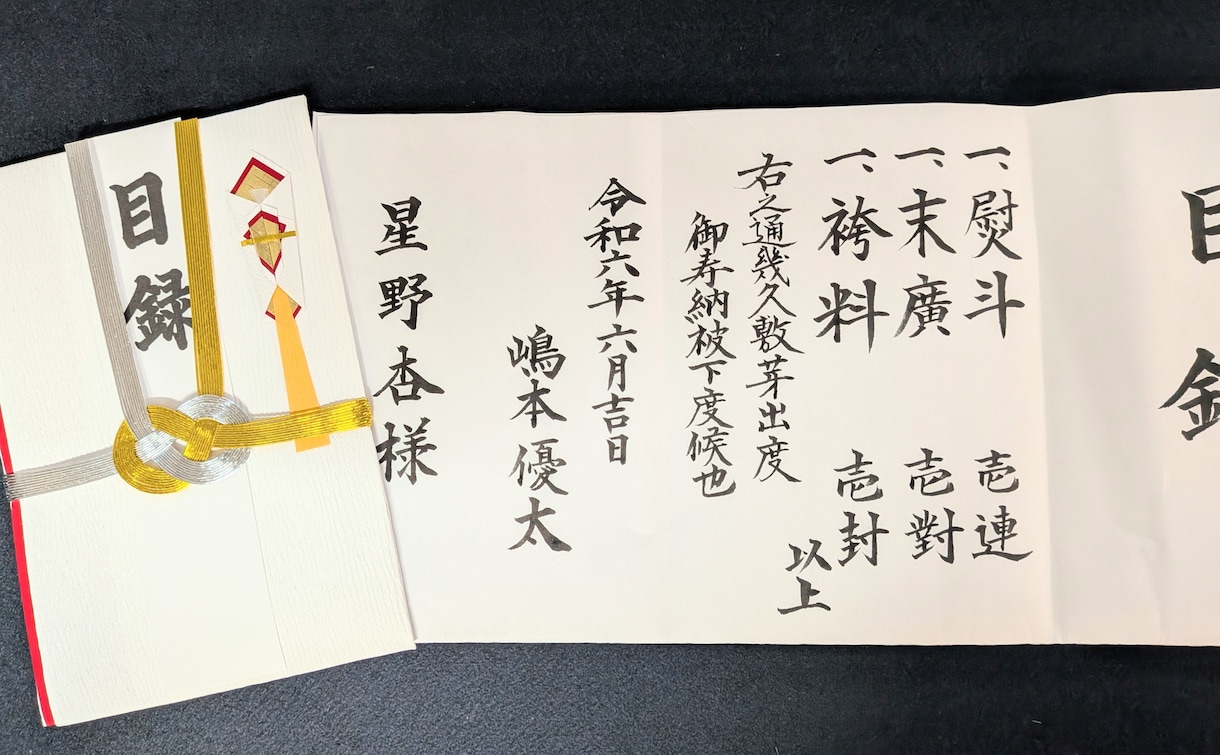 目録
一、熨斗 壱連
一、末廣 壱對
一、袴料 壱封
以上
右之通幾久敷芽出度
御寿納被下度候也
令和六年六月吉日
嶋本優太
星野杏様
目録